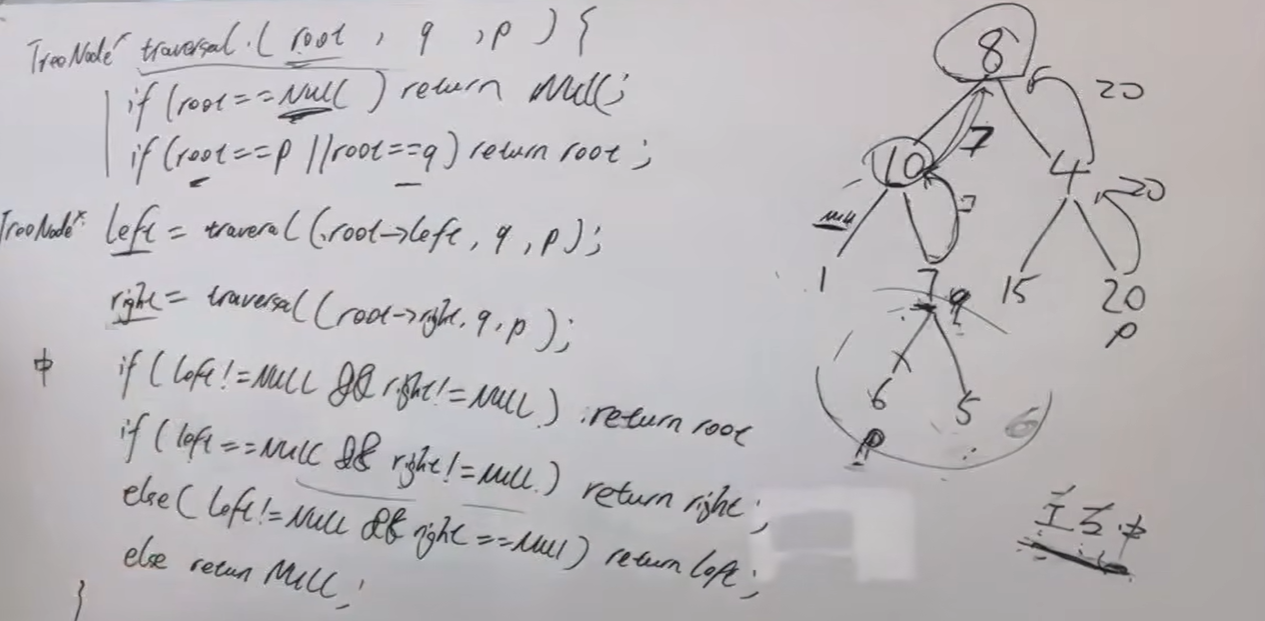 TreeNode* traversal.( root , q , p ) {
if (root==NULL) return NULL;
if (root==p || root==q) return root;
TreeNode* left = traveral(root->left, q, p);
right = traversal(root->right, q, p);
中 if (left!=NULL && right!=NULL) return root
if (left==NULL && right!=NULL) return right;
else( left!=NULL && right==NULL) return left;
else return NULL;
}
8
20
7
10
4
20
7
NULL
1
7
q
15
20
p
6
5
6
p
左右中